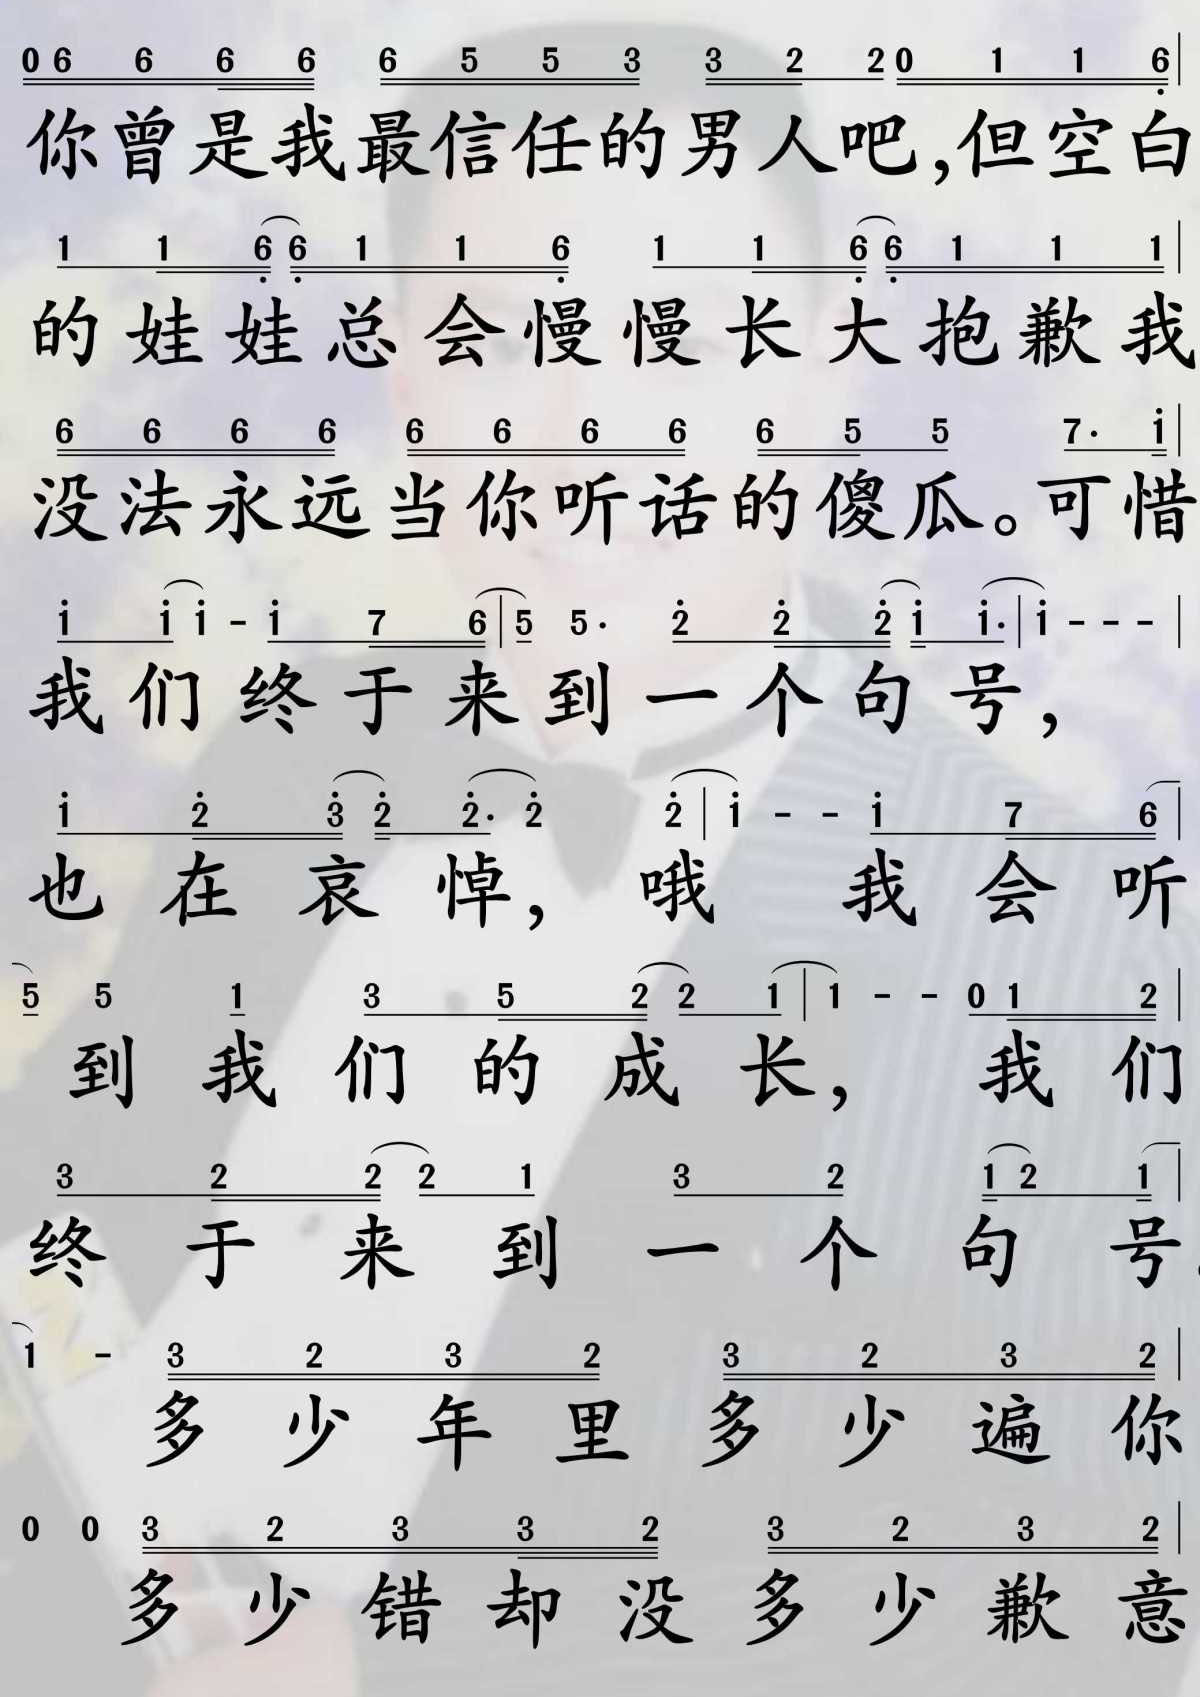 0 6 6 6 6 6 5 5 3 3 2 2 0 1 1 6
你曾是我最信任的男人吧,但空白
1 1 6 6 1 1 6 1 1 6 6 1 1 1
的娃娃总会慢慢长大抱歉我
6 6 6 6 6 6 6 6 6 5 5 7· i
没法永远当你听话的傻瓜。可惜
i i i - i 7 6 | 5 5· 2 2 2 i i· | i - - - |
我们终于来到一个句号,
i 2 3 2 2· 2 2 | i - - i 7 6 |
也在哀悼,哦 我会听
5 5 1 3 5 2 2 1 | 1 - - 0 1 2 |
到我们的成长,我们
3 2 2 2 1 3 2 1 2 1 |
终于来到一个句号
1 - 3 2 3 2 3 2 3 2 |
多少年里多少遍你
0 0 3 2 3 3 2 3 2 3 2 |
多少错却没多少歉意